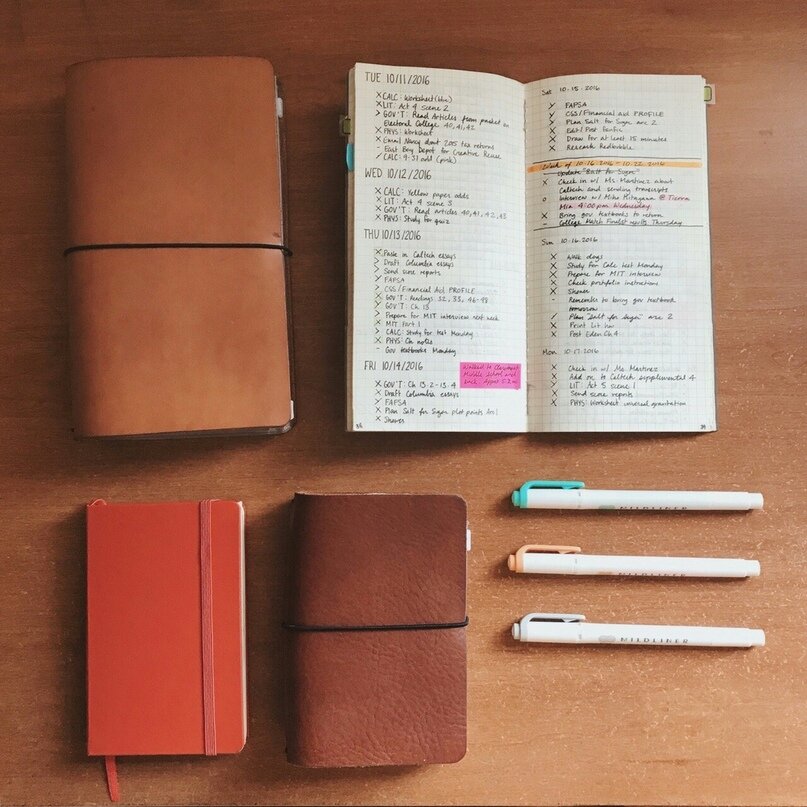 TUE 10/11/2016
X CALC: Worksheet (blue)
X LIT: Act 4 scene 2
> GOV'T: Read Articles from packet on
Electoral College 40, 41, 42
X PHYS: Worksheet
X Email Nancy about 2015 tax returns
- East Bay Depot for Creative Reuse
/ CALC: 9-31 odd (pink)
WED 10/12/2016
X CALC: Yellow paper odds
X LIT: Act 4 scene 3
X GOV'T: Read articles 40, 41, 42, 43
X PHYS: Study for quiz
THU 10/13/2016
X Paste in Caltech essays
> Draft Columbia essays
> Send score reports
> FAFSA
> CSS/Financial Aid PROFILE
X GOV'T: Readings 32, 33, 46-48
X GOV'T: Ch 13
> Prepare for MIT interview next week
X MIT Part 1
> CALC: Study for test Monday
X PHYS: Ch notes
- Gov textbooks Monday
FRI 10/14/2016
X GOV'T: Ch 13.2-13.4
X Draft Columbia essays
> FAFSA
X Plan Salt for Sugar plot points Arc 1
X Shower
Walked to
Middle School and
back.
36
Sat 10.15.2016
> FAFSA
> CSS/Financial Aid PROFILE
> Plan Salt for Sugar arc 2
X Edit/Post Fanfic
X Draw for at least 15 minutes
X Research Redbubble
Week of 10.16.2016 - 10.22.2016
- Update "Salt for Sugar"
X Check in w/ Ms. Martinez about
Caltech and sending transcripts
o Interview w/ Mike @ Tierra
Mia 4:00 pm Wednesday
X Bring gov textbooks to return
- College Match Finalist results Thursday
Sun 10.16.2016
X Walk dogs
X Study for Calc test Monday
X Prepare for MIT interview
X Check portfolio instructions
X Shower
- Remember to bring gov textbook
tomorrow
/ Plan "Salt for Sugar" arc 2
X Print Lit hw
X Post Eden Ch 4
Mon 10.17.2016
X Check in w/ Ms. Martinez
X Add on to Caltech supplemental 4
> LIT: Act 5 scene 1
X Send score reports
X PHYS: Worksheet universal gravitation
39
MILDLINER
MILDLINER
MILDLINER